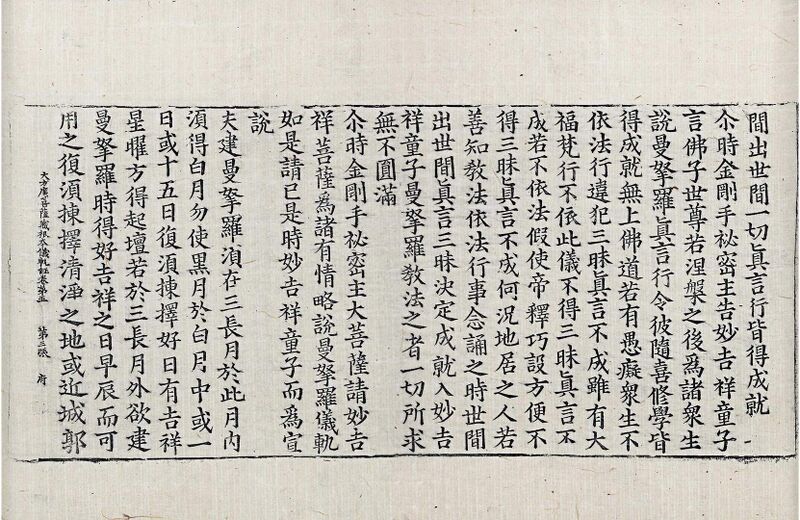 間出世間一切眞言行皆得成就
尒時金剛手祕密主告妙吉祥童子
言佛子世尊若涅槃之後爲諸衆生
說曼拏羅眞言行令彼隨喜修學皆
得成就無上佛道若有愚癡衆生不
依法行違犯三昧眞言不成雖有大
福梵行不依此儀不得三昧眞言不
成若不依法假使帝釋巧設方便不
得三昧眞言不成何況地居之人若
善知教法依法行事念誦之時世間
出世間眞言三昧決定成就入妙吉
祥童子曼拏羅教法之者一切所求
無不圓滿
尒時金剛手祕密主大菩薩請妙吉
祥菩薩爲諸有情略說曼拏羅儀軌
如是請已是時妙吉祥童子而爲宣
說
夫建曼拏羅湏在三長月於此月內
湏得白月勿使黑月於白月中或一
日或十五日復湏揀擇好日有吉祥
星曜方得起壇若於三長月外欲建
曼拏羅時得好吉祥之日早辰而可
用之復湏揀擇清淨之地或近城郭
大方廣菩薩藏根本儀軌經卷第五 第三張 府